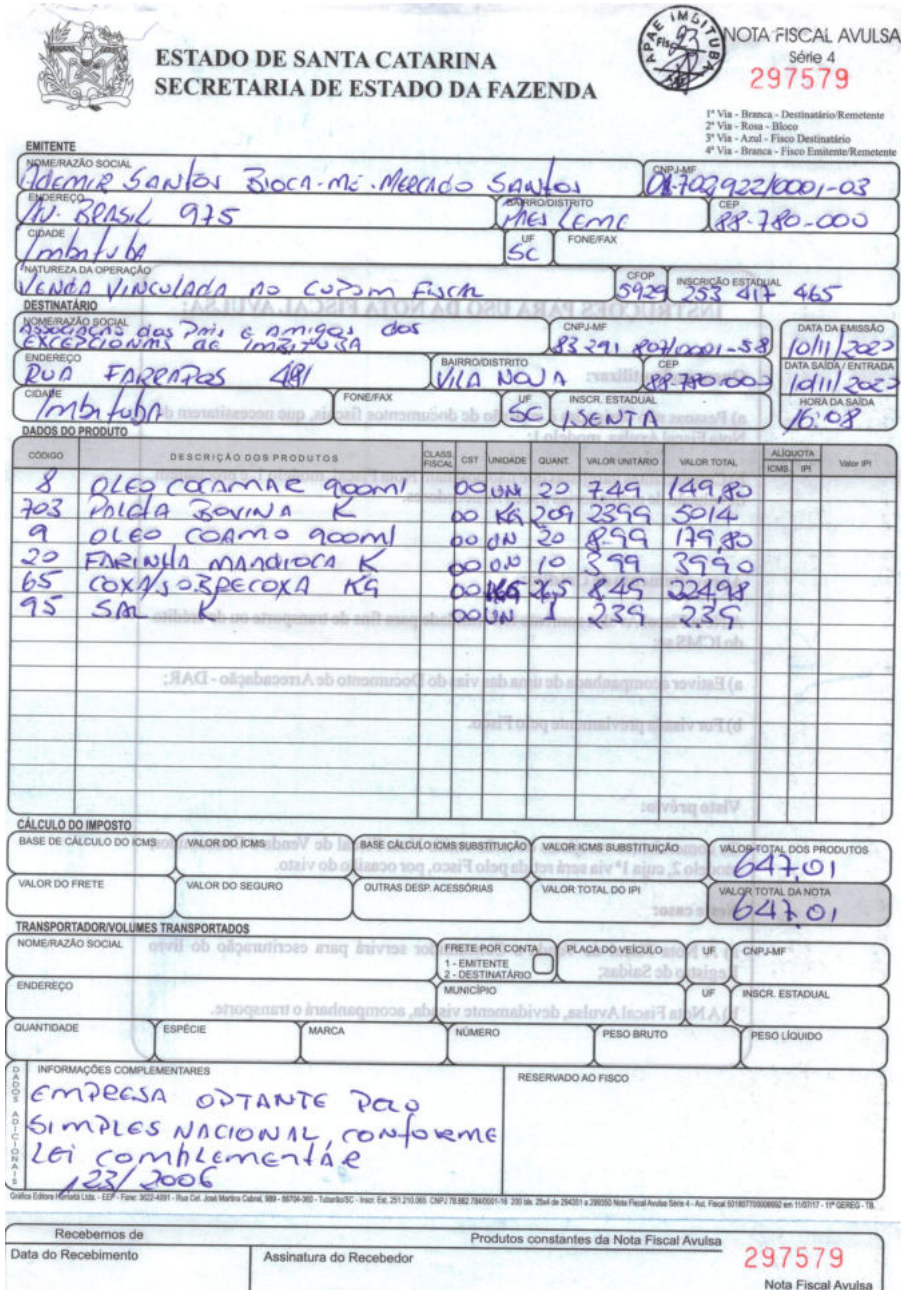 ESTADO DE SANTA CATARINA
SECRETARIA DE ESTADO DA FAZENDA
APAE IMBITUBA
Fisc 93
NOTA FISCAL AVULSA
Série 4
297579
1ª Via - Branca - Destinatário/Remetente
2ª Via - Rosa - Bloco
3ª Via - Azul - Fisco Destinatário
4ª Via - Branca - Fisco Emitente/Remetente
EMITENTE
NOME/RAZÃO SOCIAL CNPJ-MF
Ademir Santos Bioca-ME-Mercado Santos 01.702922/0001-03
ENDEREÇO BAIRRO/DISTRITO CEP
AV. BRASIL 975 PAES LEME 88-780-000
CIDADE UF FONE/FAX
Imbituba SC
NATUREZA DA OPERAÇÃO CFOP INSCRIÇÃO ESTADUAL
VENDA VINCULADA AO CUPOM FISCAL 5929 253 417 465
DESTINATÁRIO
NOME/RAZÃO SOCIAL CNPJ-MF DATA DA EMISSÃO
Associação dos Pais e Amigos dos
EXCEPCIONAIS DE IMBITUBA 83 291 807/0001-58 10/11/2022
ENDEREÇO BAIRRO/DISTRITO CEP DATA SAÍDA / ENTRADA
RUA FARRAPOS 481 VILA NOVA 88-780-000 10/11/2022
CIDADE FONE/FAX UF INSCR. ESTADUAL HORA DA SAÍDA
Imbituba SC ISENTA 16:08
DADOS DO PRODUTO
CÓDIGO DESCRIÇÃO DOS PRODUTOS CLASS. FISCAL CST UNIDADE QUANT. VALOR UNITÁRIO VALOR TOTAL ALÍQUOTA ICMS IPI Valor IPI
8 OLEO COCAMAR 900ml 00 UN 20 7.49 149,80
703 PALETA BOVINA K 00 KG 209 2399 5014
9 OLEO COAMO 900ml 00 UN 20 8.99 179,80
20 FARINHA MANDIOCA K 00 UN 10 3.99 3990
65 COXA/SOBRECOXA KG 00 KG 26,5 8.49 224,98
95 SAL K 00 UN 1 2.39 2.39
CÁLCULO DO IMPOSTO
BASE DE CÁLCULO DO ICMS VALOR DO ICMS BASE CÁLCULO ICMS SUBSTITUIÇÃO VALOR ICMS SUBSTITUIÇÃO VALOR TOTAL DOS PRODUTOS
647,01
VALOR DO FRETE VALOR DO SEGURO OUTRAS DESP. ACESSÓRIAS VALOR TOTAL DO IPI VALOR TOTAL DA NOTA
647,01
TRANSPORTADOR/VOLUMES TRANSPORTADOS
NOME/RAZÃO SOCIAL FRETE POR CONTA PLACA DO VEÍCULO UF CNPJ-MF
1 - EMITENTE
2 - DESTINATÁRIO
ENDEREÇO MUNICÍPIO UF INSCR. ESTADUAL
QUANTIDADE ESPÉCIE MARCA NÚMERO PESO BRUTO PESO LÍQUIDO
DADOS ADICIONAIS
INFORMAÇÕES COMPLEMENTARES RESERVADO AO FISCO
EMPRESA OPTANTE PELO
SIMPLES NACIONAL, conforme
Lei complementar
123/2006
Gráfica Editora Humaitá Ltda. - EEP - Fone: 3622-4091 - Rua Cel. José Martins Cabral, 989 - 88704-360 - Tubarão/SC - Inscr. Est. 251.210.065 CNPJ 78.882.784/0001-16 200 bls. 25x4 de 294351 a 299350 Nota Fiscal Avulsa Série 4 - Aut. Fiscal em 11/07/17 - 11ª GEREG - TB.
Recebemos de Produtos constantes da Nota Fiscal Avulsa
Data do Recebimento Assinatura do Recebedor 297579
Nota Fiscal Avulsa